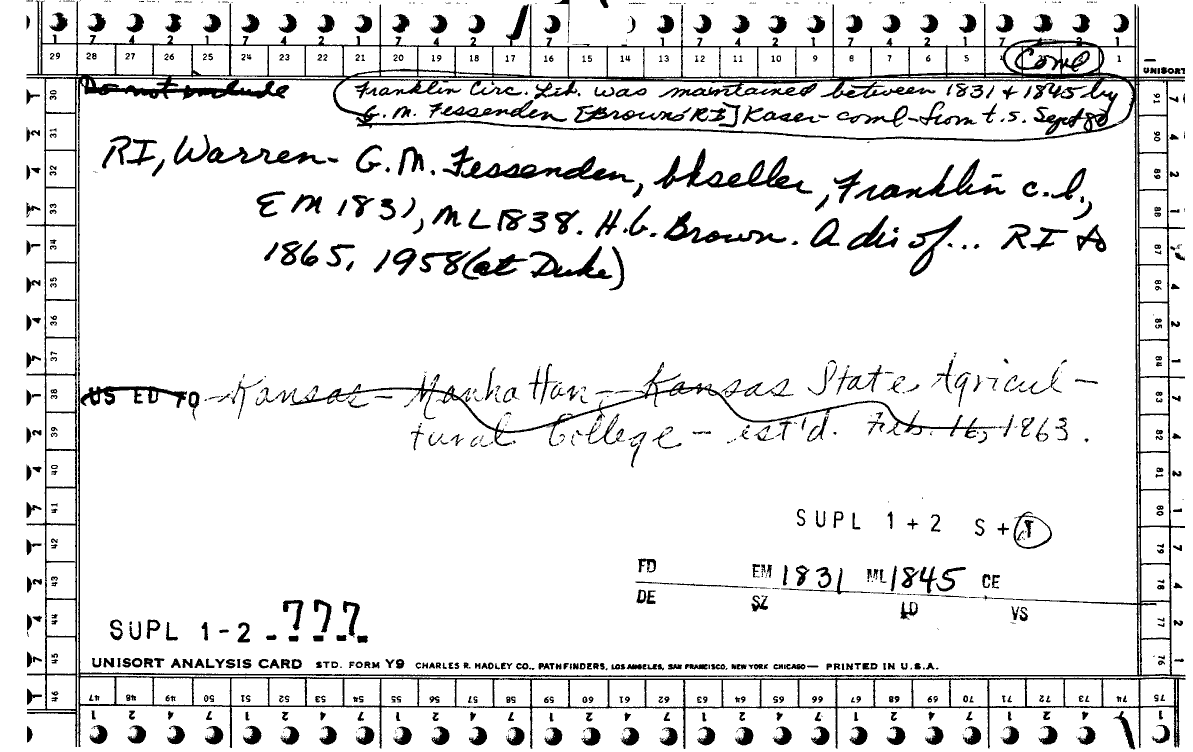 1 7 4 2 1 7 4 2 1 7 4 2 1 7 7 4 2 1 7 4 2 1 7 4 2 1
29 28 27 26 25 24 23 22 21 20 19 18 17 16 15 14 13 12 11 10 9 8 7 6 5 1
Comb
UNISORT
Do not include
Franklin Circ. Lib. was maintained between 1831 + 1845 by
G. M. Fessenden [Brown's RI] Kaser- comb-from t.s. Sept 80
RI, Warren- G.M. Fessenden, bkseller, Franklin c.l.,
EM 1831, ML 1838. H.G. Brown. A dir of... RI to
1865, 1958 (at Duke)
US ED TO - Kansas - Manhattan - Kansas State Agricul-
tural College - est'd. Feb. 16, 1863.
SUPL 1+2 S+
FD EM 1831 ML 1845 CE
DE SZ LD VS
SUPL 1-2 777
UNISORT ANALYSIS CARD STD. FORM Y9 CHARLES R. HADLEY CO., PATHFINDERS, LOS ANGELES, SAN FRANCISCO, NEW YORK CHICAGO— PRINTED IN U.S.A.
30 31 32 33 34 35 36 37 38 39 40 41 42 43 44 45 46
91 90 89 88 87 86 85 84 83 82 81 80 79 78 77 76 75
47 48 49 50 51 52 53 54 55 56 57 58 59 60 61 62 63 64 65 66 67 68 69 70 71 72 73 74
1 2 4 7 1 2 4 7 1 2 4 7 1 2 4 7 1 2 4 7 1 2 4 7 1 2 4